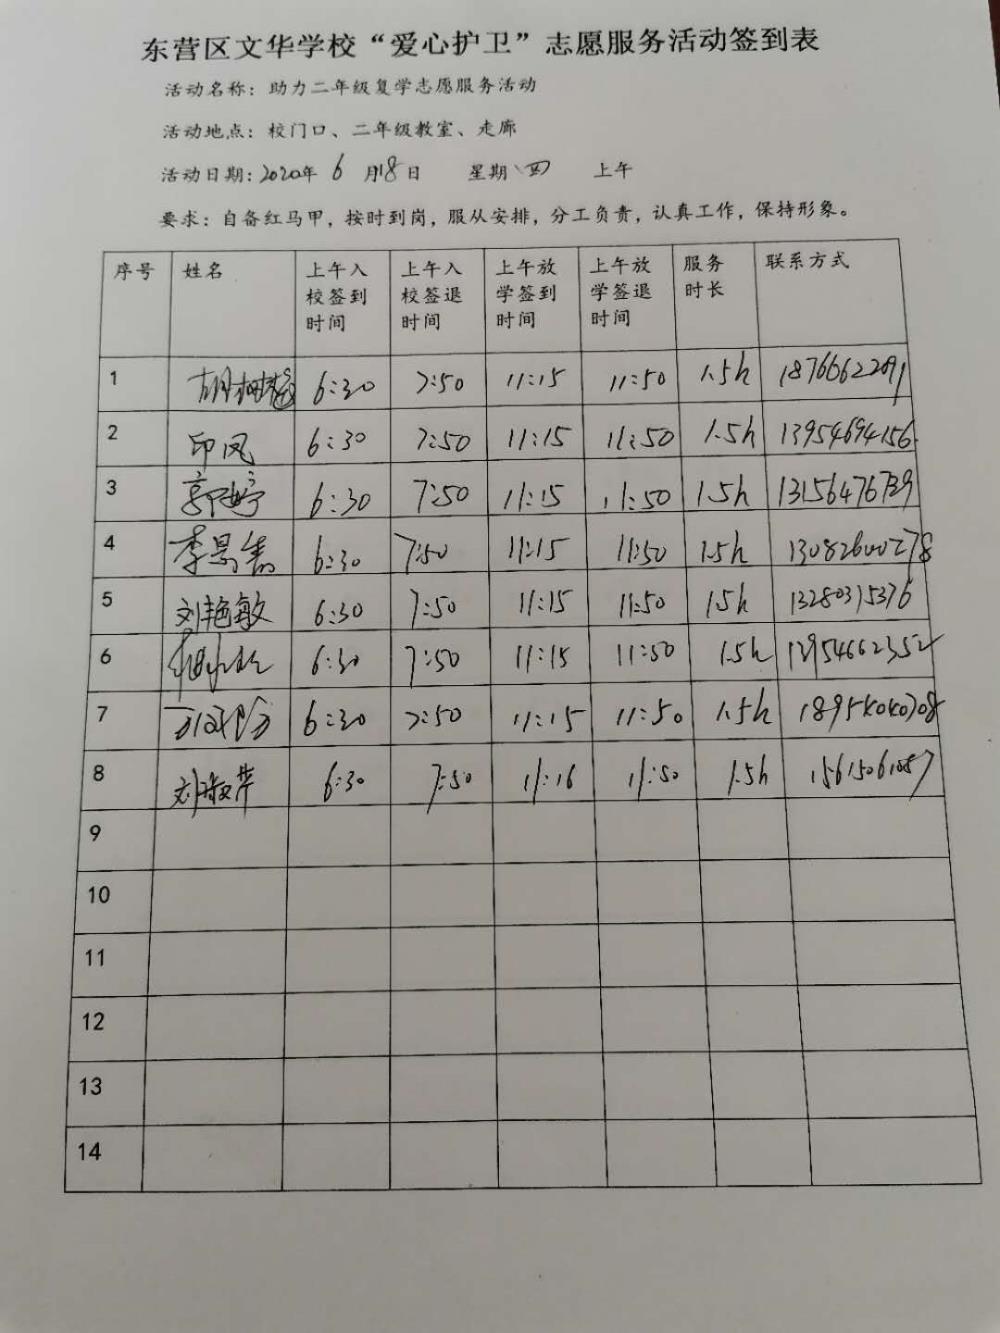 东营区文华学校“爱心护卫”志愿服务活动签到表
活动名称：助力二年级复学志愿服务活动
活动地点：校门口、二年级教室、走廊
活动日期：2020年 6 月18日 星期 四 上午
要求：自备红马甲，按时到岗，服从安排，分工负责，认真工作，保持形象。
序号 姓名 上午入校签到时间 上午入校签退时间 上午放学签到时间 上午放学签退时间 服务时长 联系方式
1 6:30 7:50 11:15 11:50 1.5h
2 印凤 6:30 7:50 11:15 11:50 1.5h 13954694156
3 郭婷 6:30 7:50 11:15 11:50 1.5h
4 6:30 7:50 11:15 11:50 1.5h
5 刘艳敏 6:30 7:50 11:15 11:50 1.5h 13280315376
6 6:30 7:50 11:15 11:50 1.5h 13954662352
7 6:30 7:50 11:15 11:50 1.5h
8 6:30 7:50 11:16 11:50 1.5h
9
10
11
12
13
14